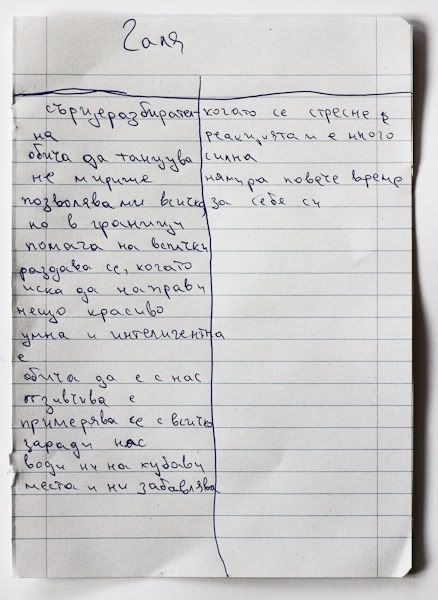 Галя
на
обича да танцува
не мирише
позволява ми всичко,
но в граници
помага на всички
раздава се, когато
иска да направи
нещо красиво
умна и интелигентна
е
обича да е с нас
отзивчива е
примерява се с всичко
заради нас
води ни на хубави
места и ни забавлява
когато се стресне
реакцията и е много
силна
повече време
за себе си